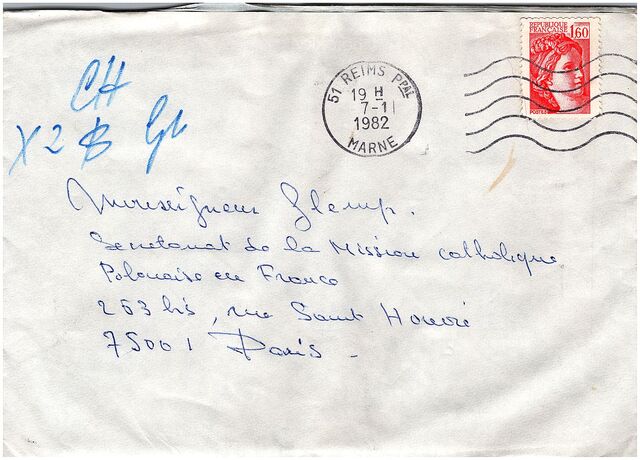 REPUBLIQUE
FRANCAISE 1,60
POSTES
51 REIMS PPAL
19 H
7-11
1982
MARNE
CH
X 2 B Gl
Monseigneur Glemp.
Secretariat de la Mission catholique
Polonaise en France
263 bis, rue Saint Honoré
75001 Paris -